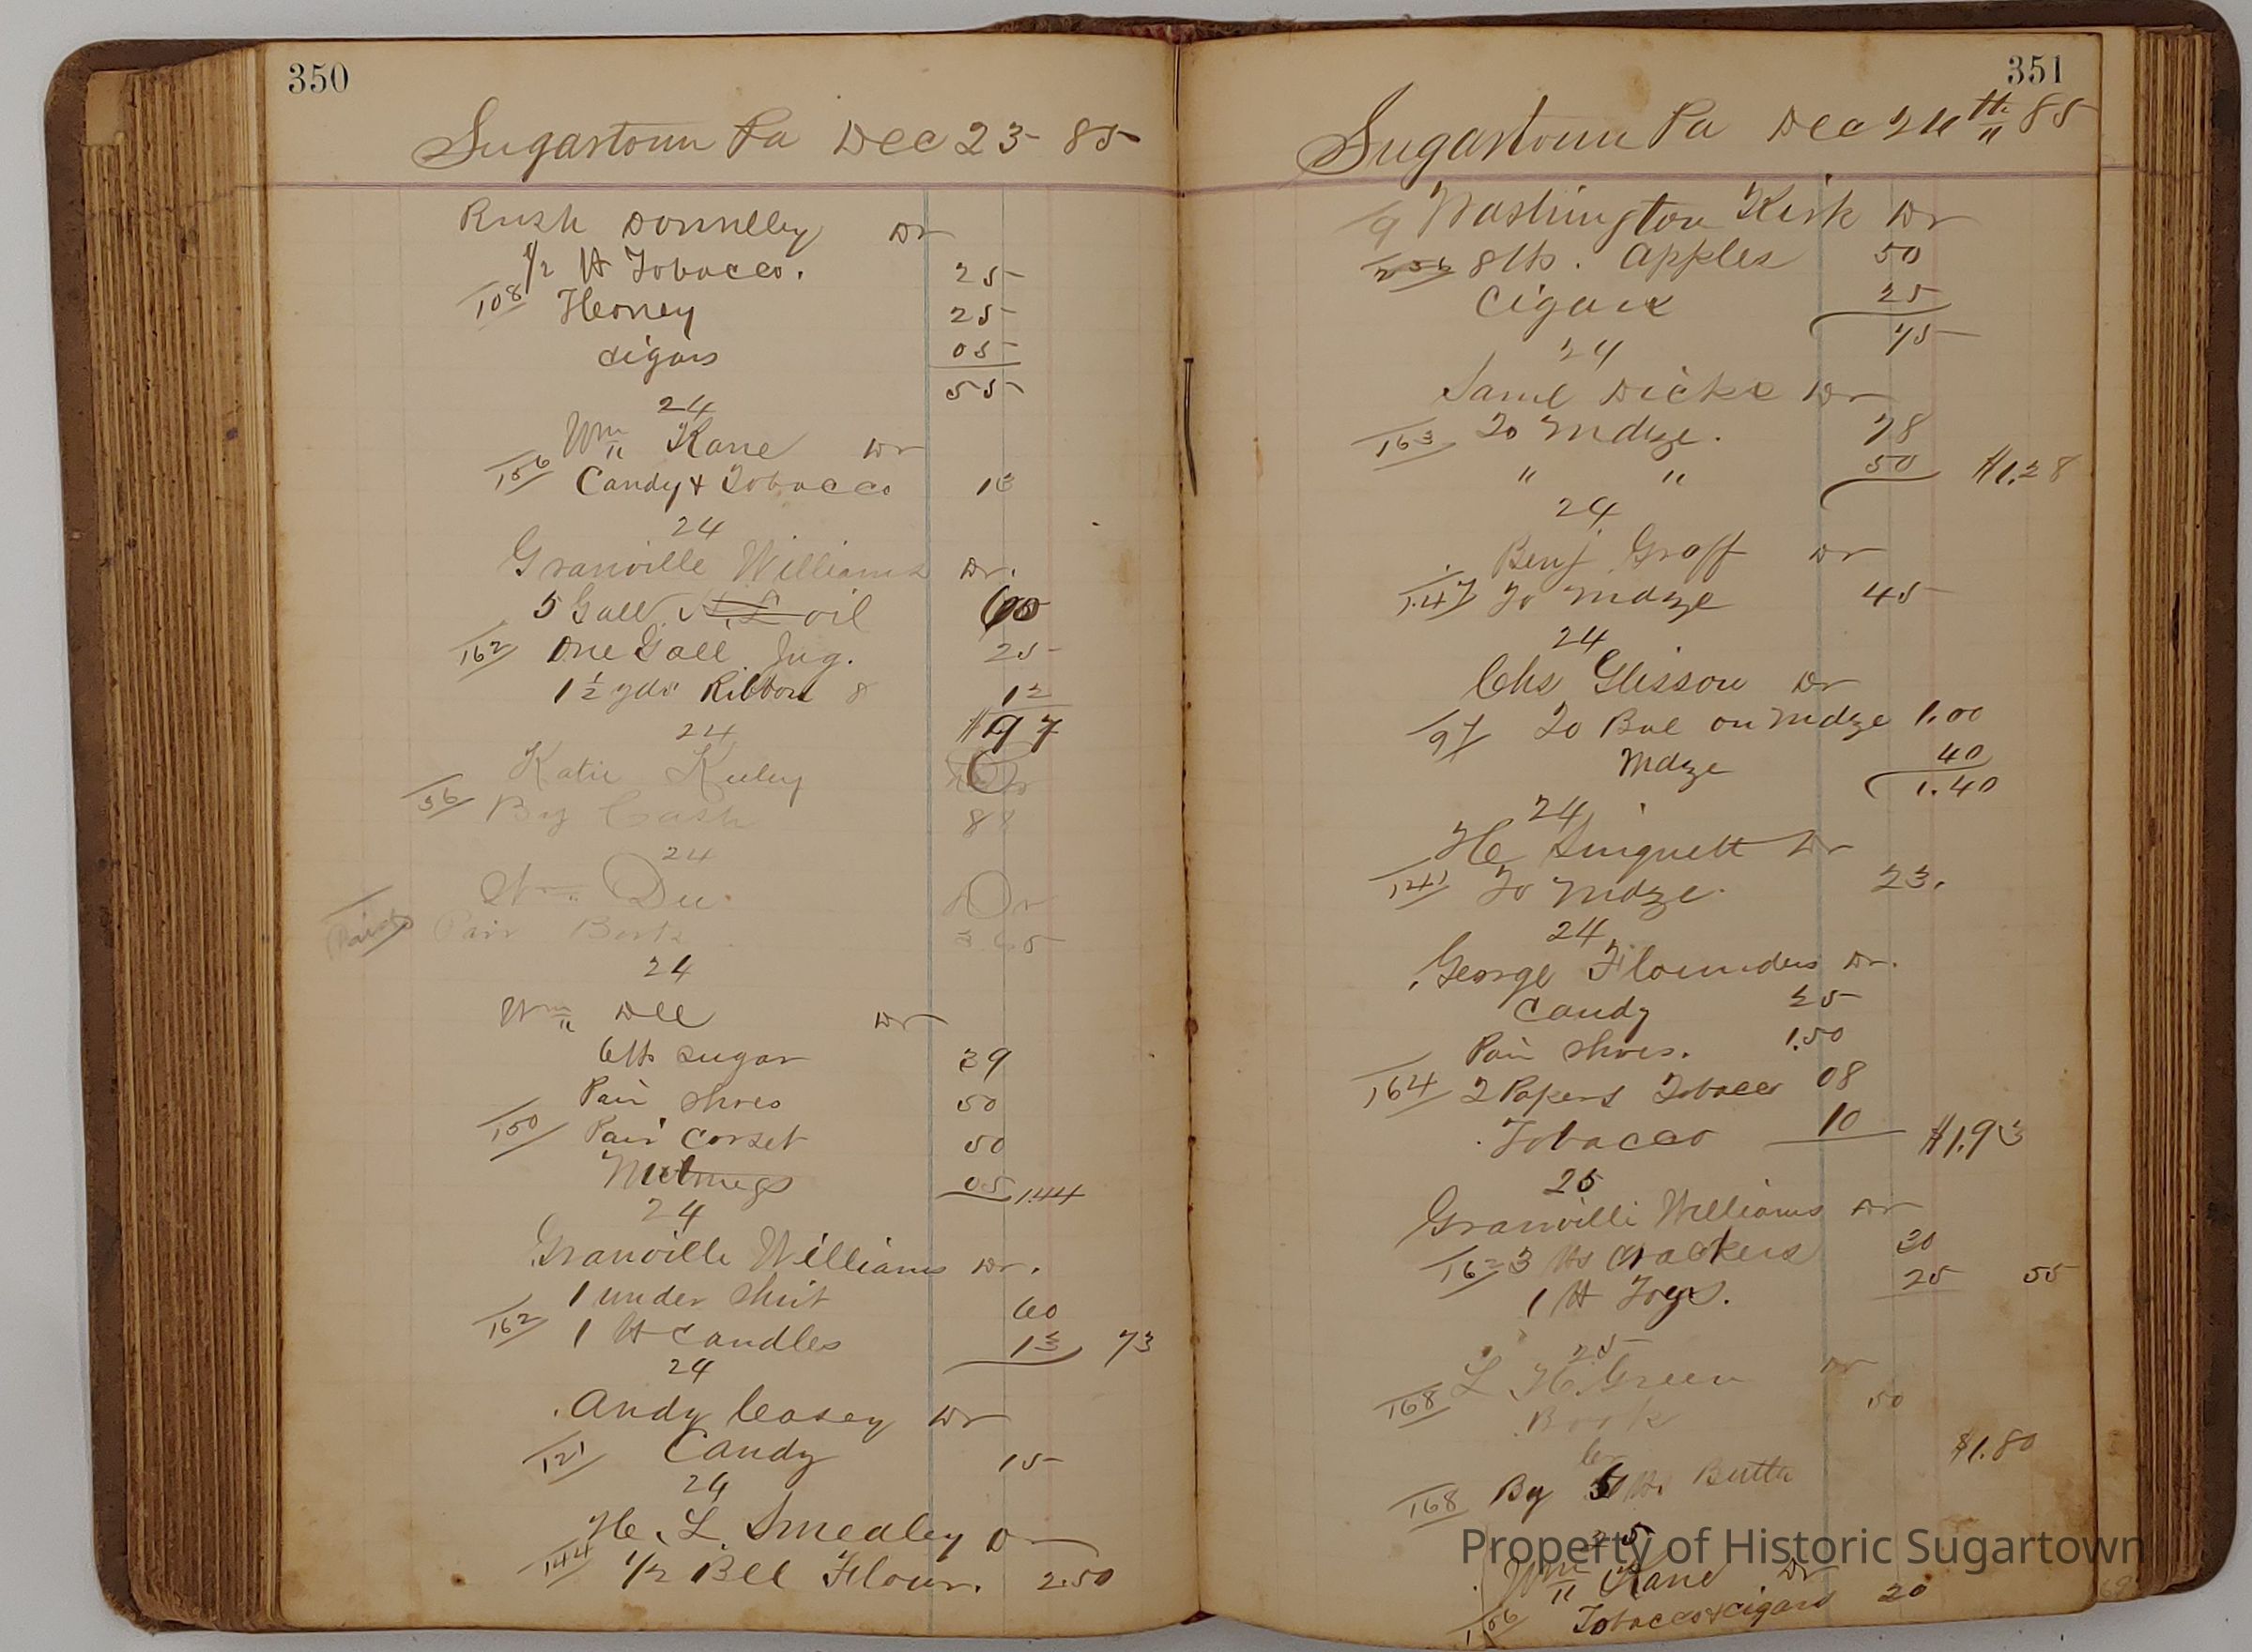 350
Sugartown Pa Dec 23 - 85
Rush Donnelly Dr
1/2 lb Tobacco. 25
108 Honey 25
cigars 05
55
24
Wm Kane Dr
156 Candy & Tobacco 13
24
Granville Williams Dr.
5 Gall. oil 60
162 One Gall Jug. 25
1 1/2 yds Ribbon 8 12
$97
24
Katie
56 By Cash 88
24
Wm Dr
Paid Pair
24
Wm Dr
6 lb Sugar 39
Pair Shoes 50
150 Pair Corset 50
Nutmegs 05 1.44
24
Granville Williams Dr.
1 under Shirt 60
162 1 lb Candles 13 73
24
Andy Casey Dr
121 Candy 15
24
H. L. Smedley Dr
144 1/2 Bll Flour. 2.50
351
Sugartown Pa Dec 24th 85
Washington Kirk Dr
8 lb. Apples 50
Cigars 25
75
24
Saml Dicks Dr
163 To Mdze. 78
" " 50 $1.28
24
Benj Groff Dr
147 To Mdze 45
24
Chs Glisson Dr
97 To Bal on Mdze 1.00
Mdze 40
1.40
24
H Dr
141 To Mdze. 23.
24
George Flounders Dr.
Candy 25
Pair Shoes. 1.50
164 2 Papers Tobacco 08
Tobacco 10 $1.93
25
Granville Williams Dr
162 3 lbs Crackers 30
1 lb 25 55
25
L H. Green Dr
168 Book 50
Cr
168 By lbs Butter $1.80
25
Wm Kane Dr
156 Tobacco & Cigars 20
Property of Historic Sugartown